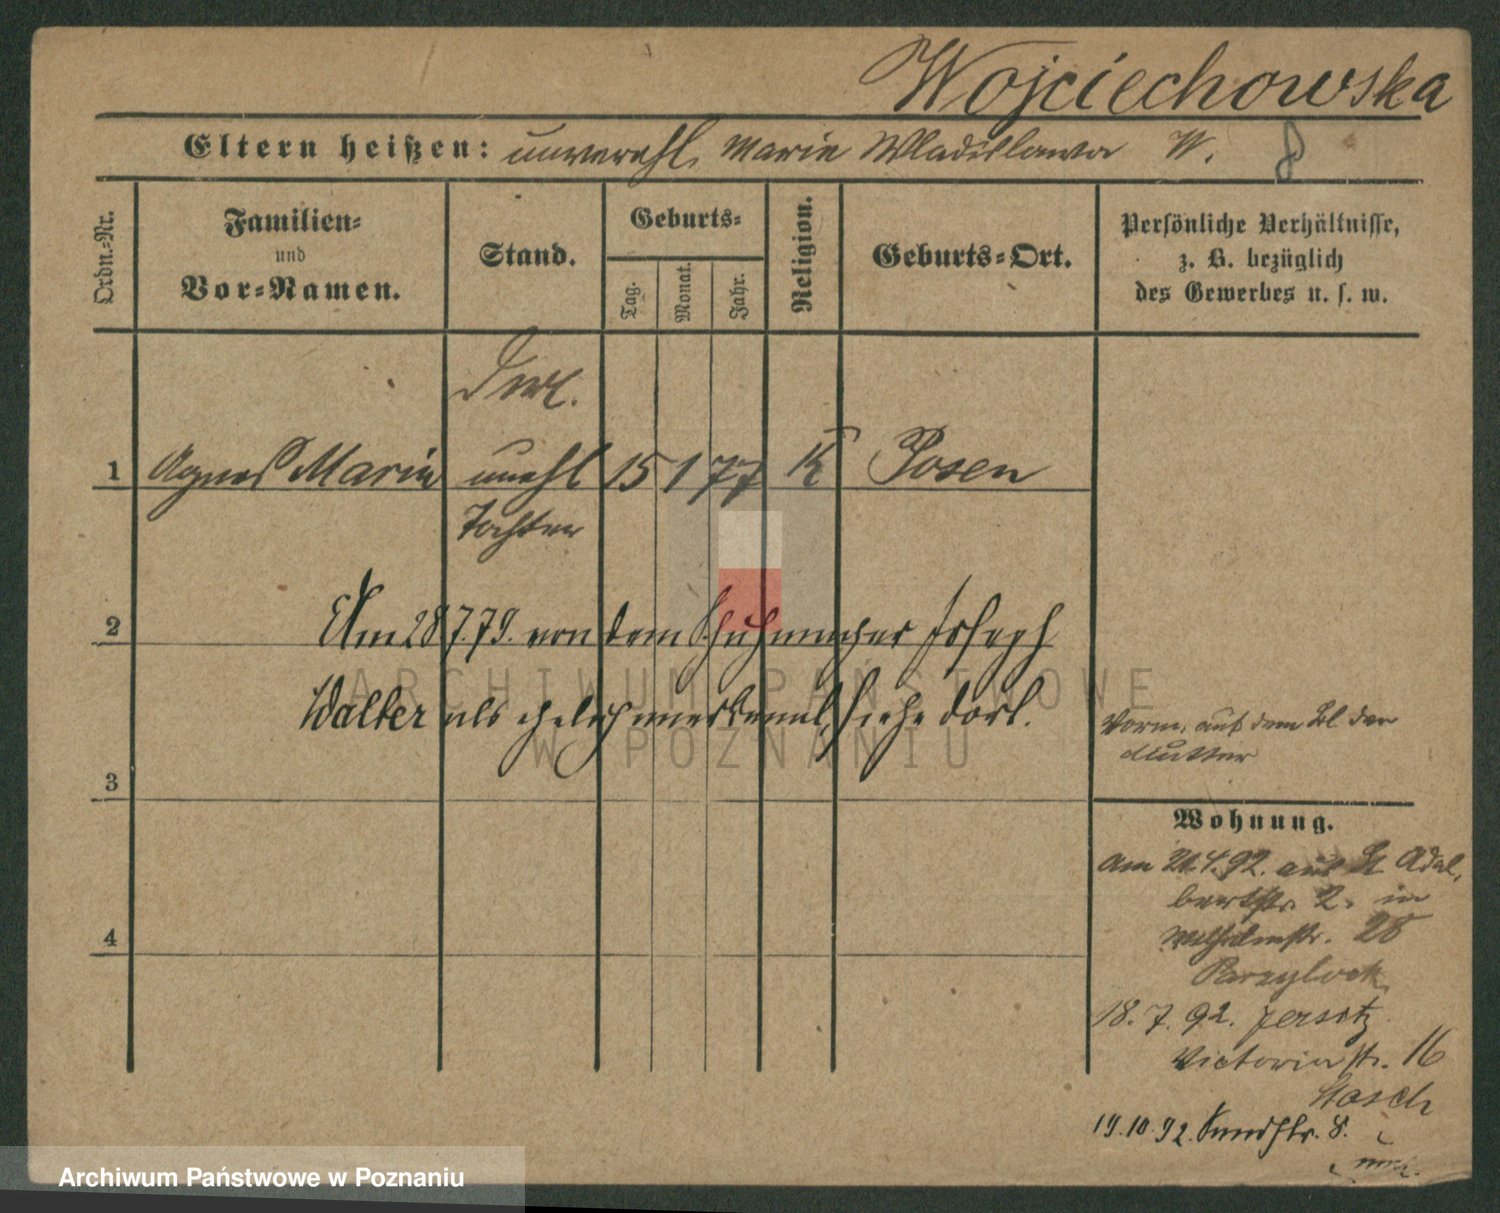 Wojciechowska
Eltern heißen: unverehl. Marie Wladislawa W. 8
Ordn.-Nr.
Familien-
und
Vor-Namen.
Stand.
Geburts-
Tag.
Monat.
Jahr.
Religion.
Geburts-Ort.
Persönliche Verhältnisse,
z. B. bezüglich
des Gewerbes u. s. w.
1 Agnes Marie unehl 15 1 77 K Posen
Tochter
2 Am 28.7.79. von dem Schuhmacher Joseph
Walter als ehelich anerkannt, siehe dort.
Vorm. auf dem Bl der
Mutter
3
Wohnung.
am 21.4.92. aus St Adal,
bertstr. 2. in
Wilhelmstr. 28
4
18.7.92. Jersitz
Victoriastr. 16
Stasch
19.10.92. Sandstr. 8.
ARCHIWUM PAŃSTWOWE
W POZNANIU
Archiwum Państwowe w Poznaniu